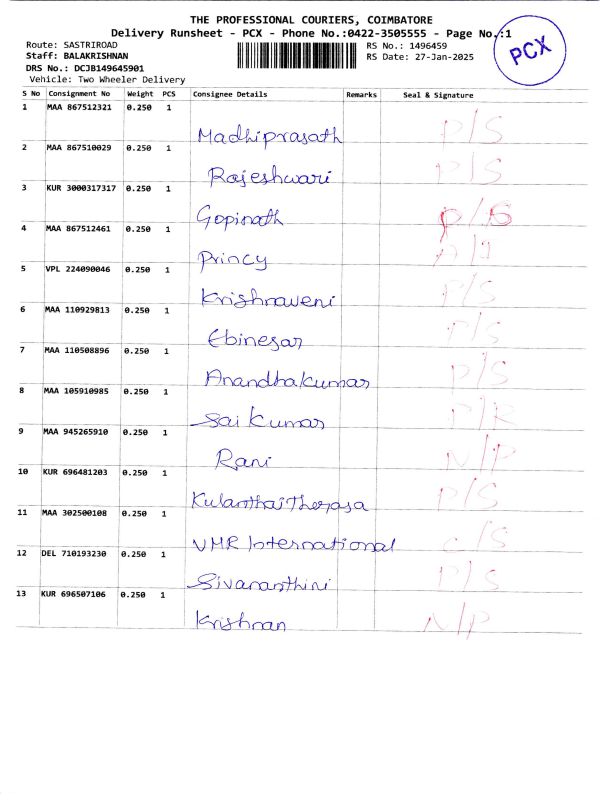 THE PROFESSIONAL COURIERS, COIMBATORE
Delivery Runsheet - PCX - Phone No.:0422-3505555 - Page No.:1
Route: SASTRIROAD RS No.: 1496459
Staff: BALAKRISHNAN RS Date: 27-Jan-2025
DRS No.: DCJB149645901
Vehicle: Two Wheeler Delivery
PCX
S No Consignment No Weight PCS Consignee Details Remarks Seal & Signature
1 MAA 867512321 0.250 1
Madhiprasath P/S
2 MAA 867510029 0.250 1
Rajeshwari P/S
3 KUR 3000317317 0.250 1
Gopinath P/S
4 MAA 867512461 0.250 1
Princy
5 VPL 224090046 0.250 1
Krishnaveni P/S
6 MAA 110929813 0.250 1
Ebinesar P/S
7 MAA 110508896 0.250 1
Anandhakumar P/S
8 MAA 105910985 0.250 1
Sai Kumar P/R
9 MAA 945265910 0.250 1
Rani N/P
10 KUR 696481203 0.250 1
KulanthaiTherasa P/S
11 MAA 302500108 0.250 1
VMR International C/S
12 DEL 710193230 0.250 1
Sivananthini P/S
13 KUR 696507106 0.250 1
Krishnan N/P